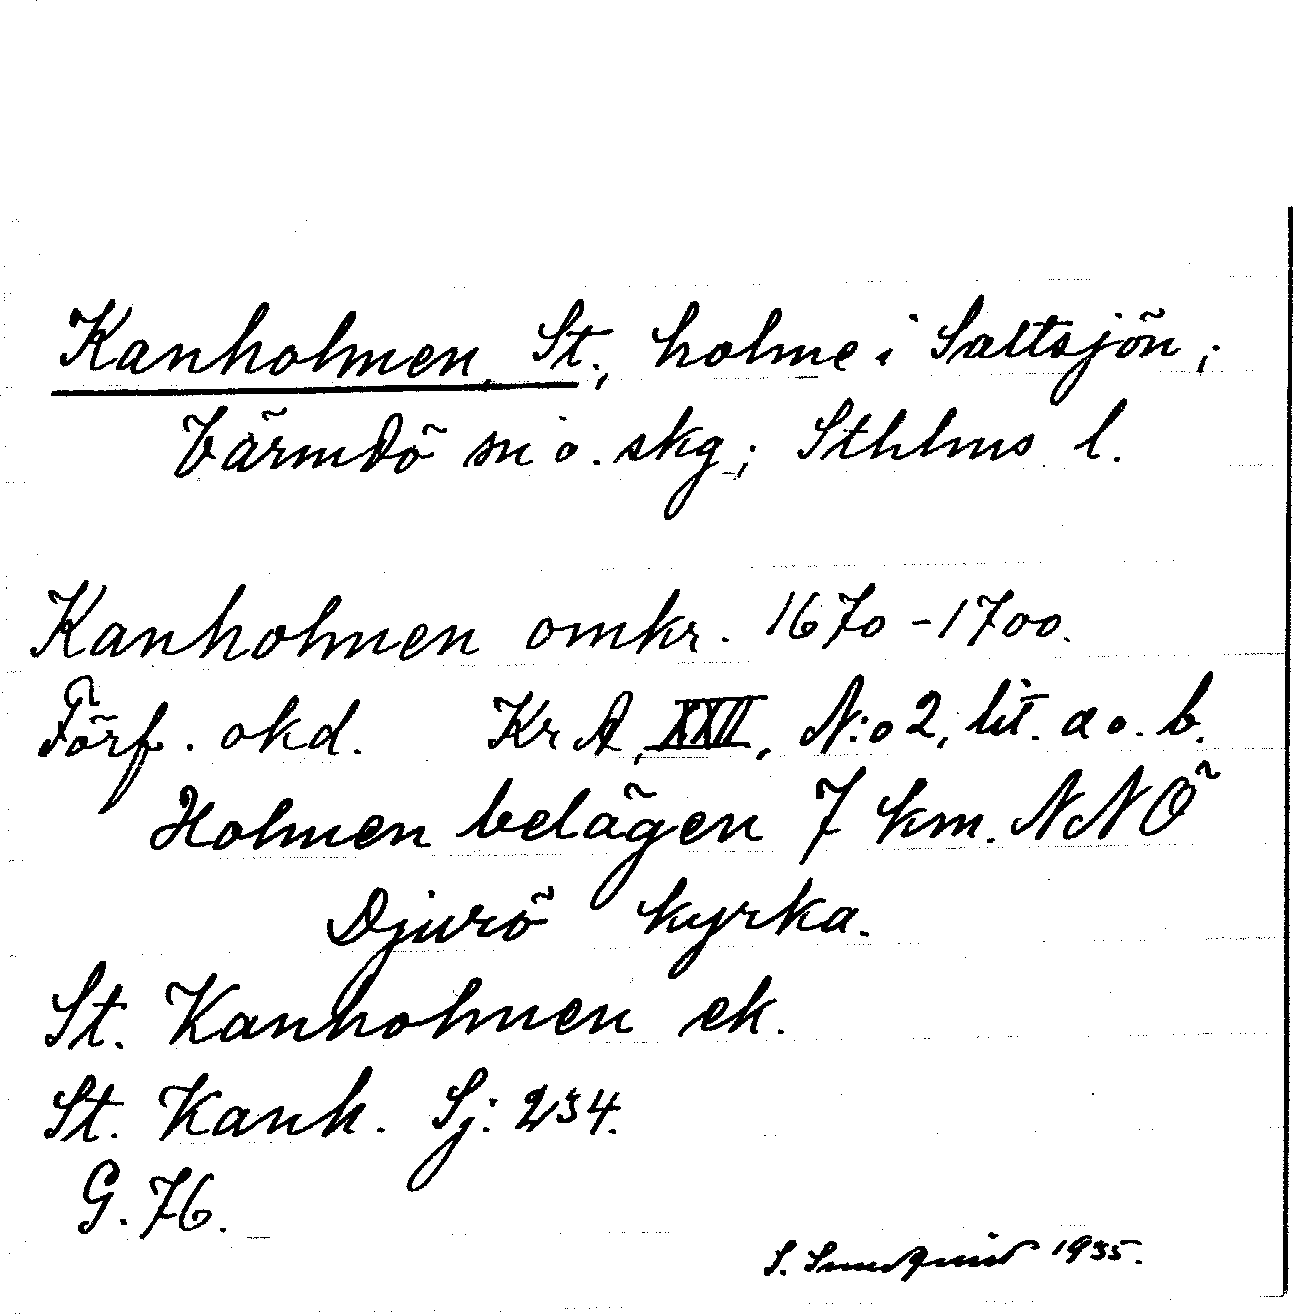 Kanholmen, St., holme i Saltsjön;
Värmdö sn o. skg; Sthlms l.
Kanholmen omkr. 1670-1700.
Förf. okd. KrA, XXII, N:o 2, lit. a o. b.
Holmen belägen 7 km. NNÖ
Djurö kyrka.
St. Kanholmen ek.
St. Kanh. Sj: 234.
G. 76.
S. Sundquist 1935.